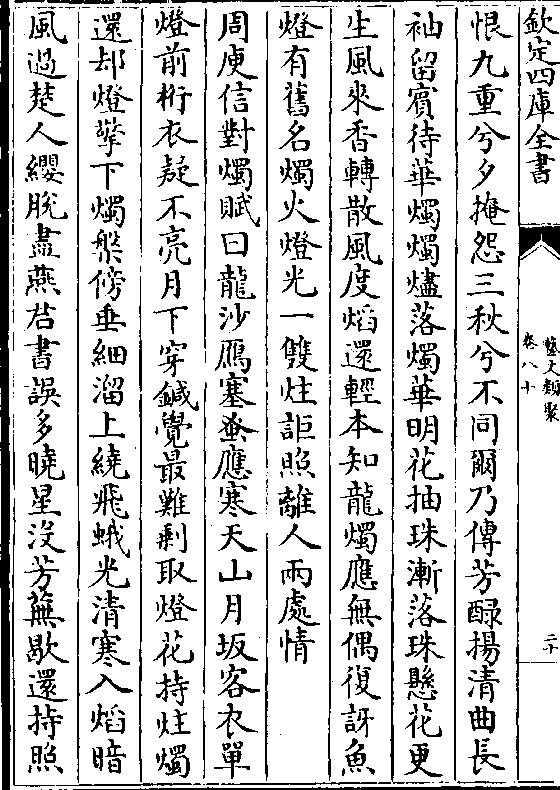 欽定四庫全書
藝文類聚
卷八十
二十
恨九重兮夕掩怨三秋兮不同爾乃傳芳醁揚清曲長
袖留賓待華燭燭燼落燭華明花抽珠漸落珠懸花更
生風來香轉散風度焰還輕本知龍燭應無偶復訝魚
燈有舊名燭火燈光一雙炷詎照離人兩處情
周庾信對燭賦曰龍沙鴈塞蚤應寒天山月坂客衣單
燈前桁衣疑不亮月下穿鍼覺最難剩取燈花持炷燭
還却燈檠下燭槃傍垂細溜上繞飛蛾光清寒入焰暗
風過楚人纓脫盡燕君書誤多曉星沒芳蕪歇還持照